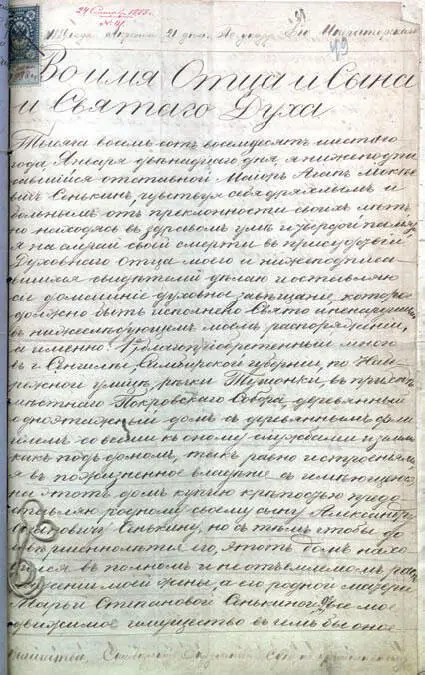 24 Сентяб. 1888.
21 дня. По указу Его Императорскаго
Во имя Отца и Сына
и Святаго Духа
Тысяча восемь сотъ восемдесятъ шестаго
года Января двѣнадцатаго дня, я нижеподпи
савшійся отставной Маіоръ Агапъ
вичъ Сенькинъ, чувствуя себя дряхлымъ и
больнымъ отъ преклонности своихъ лѣтъ
но находясь въ здравомъ умѣ и твердой памяти,
я на случай своей смерти въ присудствіи
Духовнаго Отца моего и нижеподписа-
вшихся свидѣтелей дѣлаю и оставляю
сіе домашніе духовное завѣщаніе, которое
должно быть исполнено Свято и ненарушимо
въ нижеслѣдующемъ моемъ распоряженіи,
а именно: Благопріобретенный мною
въ г. Сенгилеѣ, Симбирской губерніи, по Наб-
режной улицѣ, рѣчки Тушонки, въ приходѣ
мѣстнаго Покровскаго Собора, деревянный
одноэтажный домъ съ деревяннымъ
со всѣми къ оному службами и землею
какъ подъ домомъ, такъ равно и строеніямъ,
я въ пожизненное владѣніе съ имѣющеюся
на этотъ домъ купчею крѣпостью предо-
ставляю родному своему сыну Александру
Агаповичу Сенькину, но съ тѣмъ чтобы до
совершеннолѣтія его, этотъ домъ нахо-
дился въ полномъ и неотъемлемомъ рас-
поряженіи моей жены, а его родной матери
Марьи Степановой Сенькиной; Все мое
движимое имущество въ чемъ бы оное